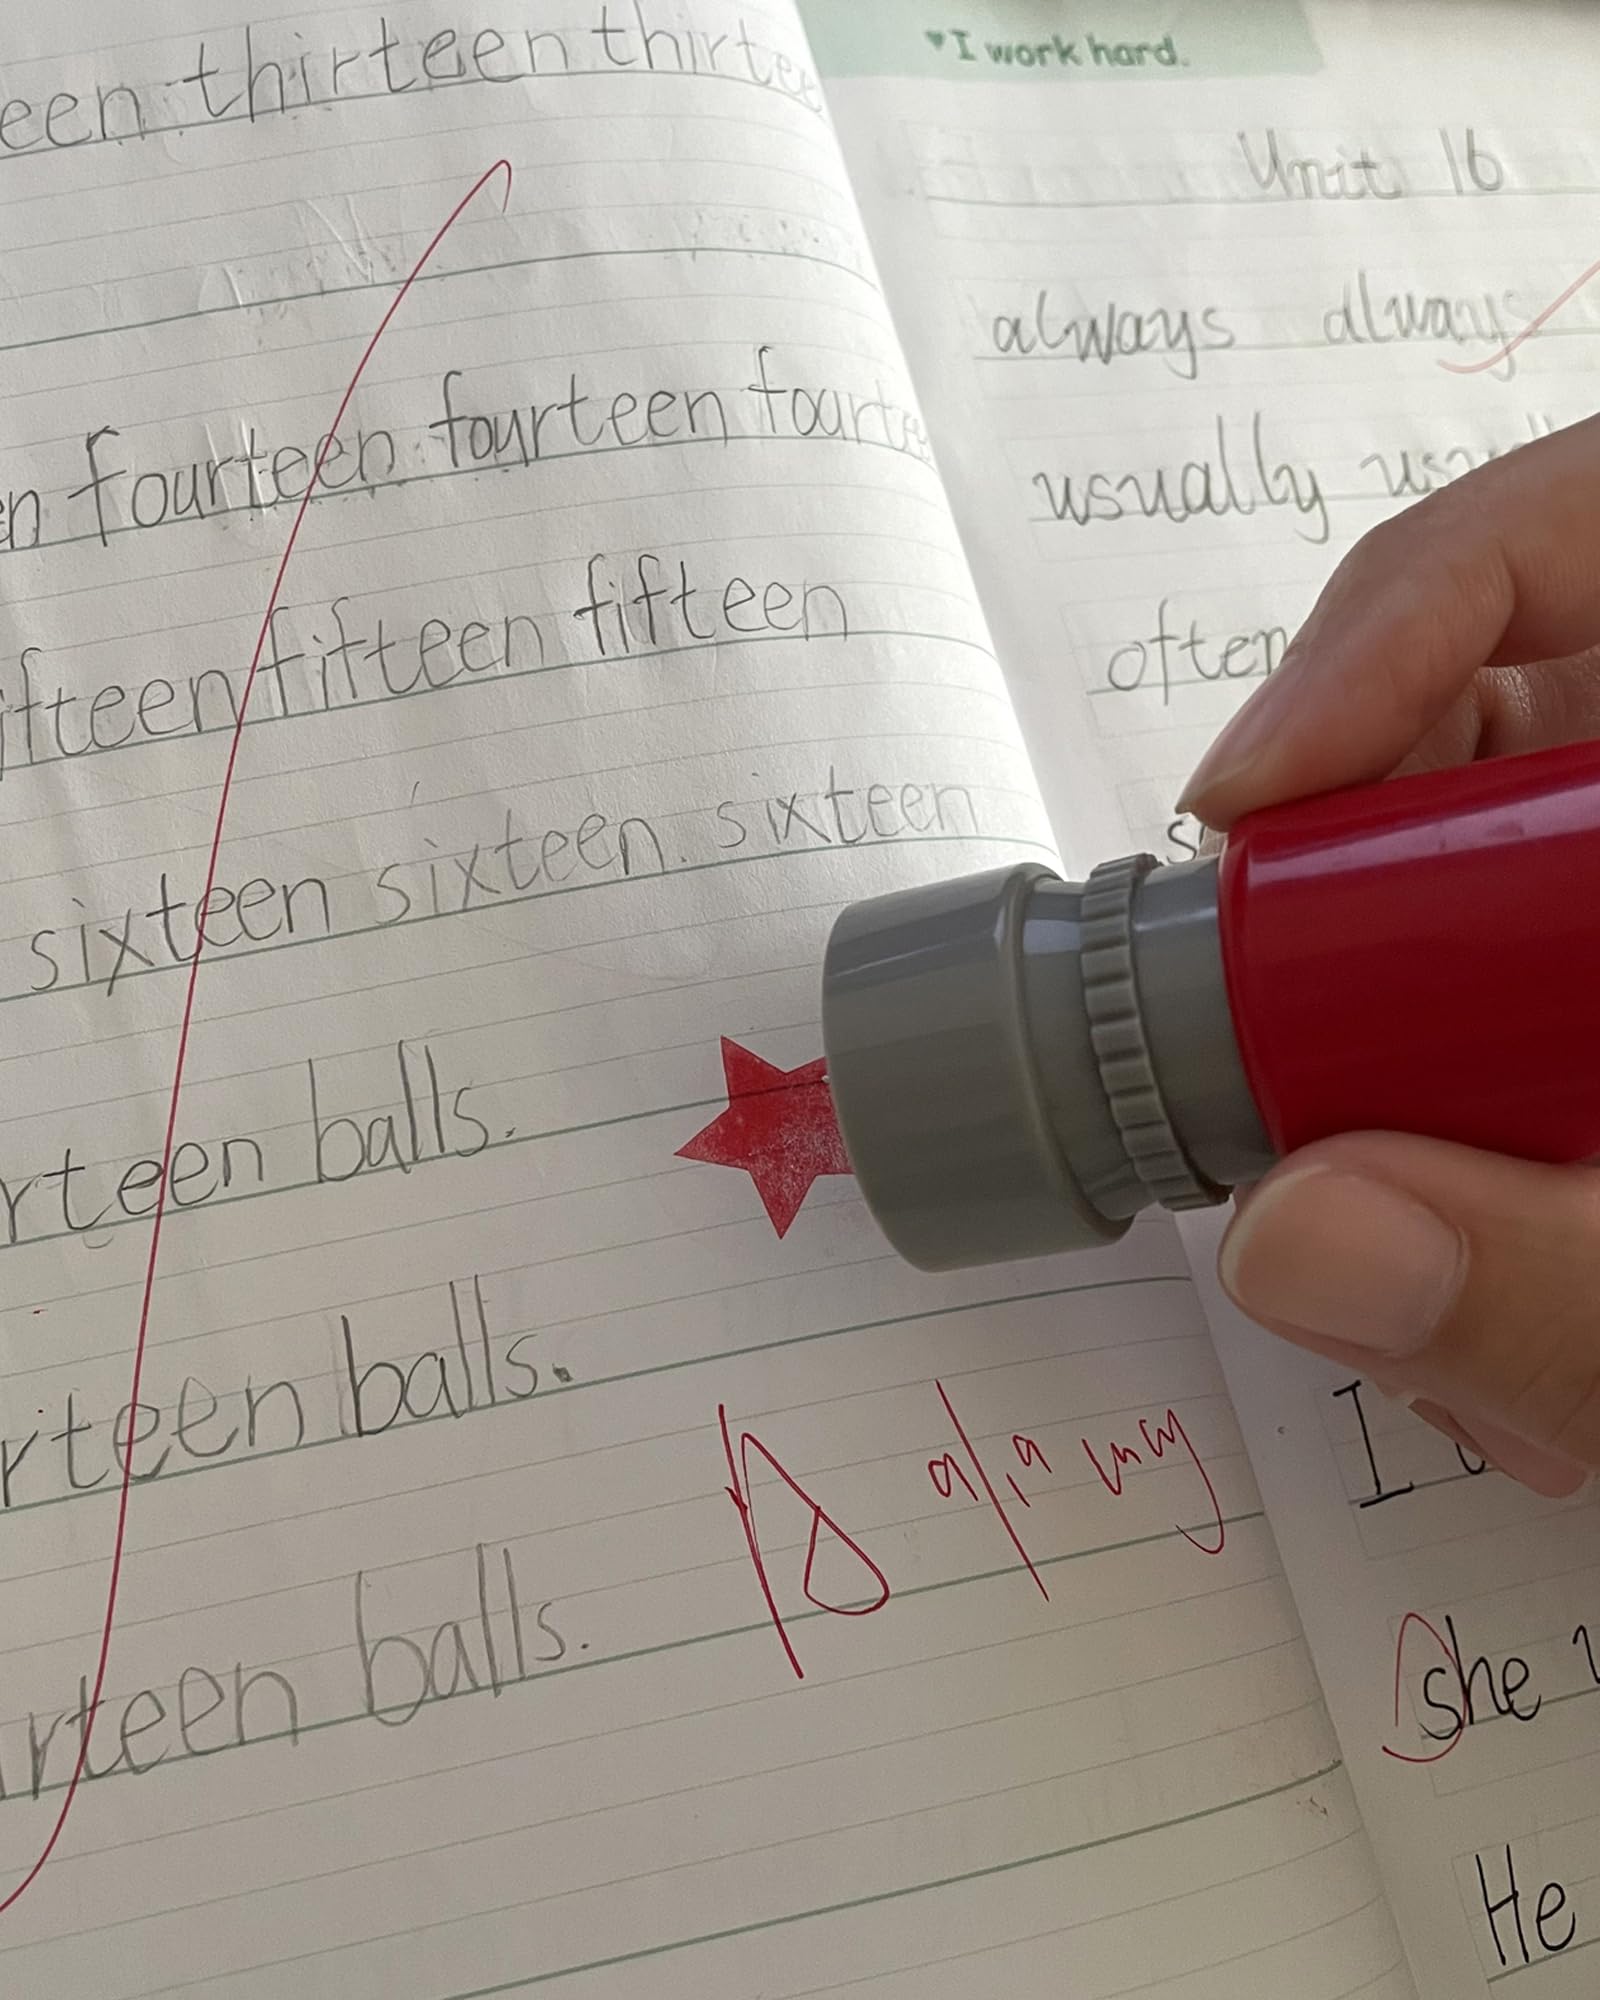 een thirteen thirtee
en fourteen fourteen fourte
ifteen fifteen fifteen
sixteen sixteen sixteen
rteen balls.
rteen balls.
rteen balls.
A
I work hard.
Unit 16
always always
usually usu
often
s
I
She
He